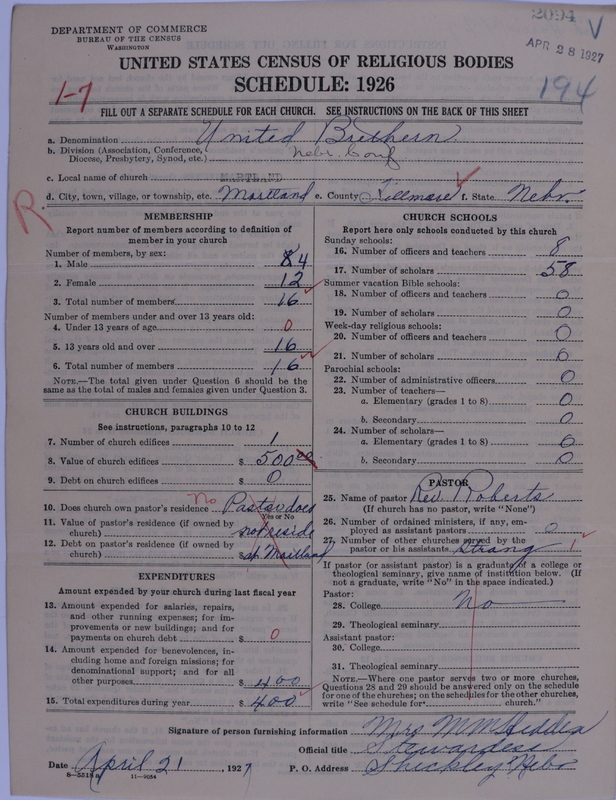 2094 V
DEPARTMENT OF COMMERCE
BUREAU OF THE CENSUS
WASHINGTON
APR 28 1927
UNITED STATES CENSUS OF RELIGIOUS BODIES
SCHEDULE: 1926
1-7
194
FILL OUT A SEPARATE SCHEDULE FOR EACH CHURCH. SEE INSTRUCTIONS ON THE BACK OF THIS SHEET
a. Denomination United Brethern
b. Division (Association, Conference, Diocese, Presbytery, Synod, etc.) Nebr. Conf
c. Local name of church MARTLAND
d. City, town, village, or township, etc. Martland e. County Fillmore f. State Nebr.
R
MEMBERSHIP
Report number of members according to definition of
member in your church
Number of members, by sex:
1. Male 4
2. Female 12
3. Total number of members 16
Number of members under and over 13 years old:
4. Under 13 years of age 0
5. 13 years old and over 16
6. Total number of members 16
NOTE.—The total given under Question 6 should be
same as the total of males and females given under Question 3.
CHURCH BUILDINGS
See instructions, paragraphs 10 to 12
7. Number of church edifices 1
8. Value of church edifices $ 500.00
9. Debt on church edifices $ 0
10. Does church own pastor's residence No Pastor does
Yes or No
11. Value of pastor's residence (if owned by
church) $ not reside
12. Debt on pastor's residence (if owned by
church) $ at Martland
EXPENDITURES
Amount expended by your church during last fiscal year
13. Amount expended for salaries, repairs,
and other running expenses; for im-
provements or new buildings; and for
payments on church debt $ 0
14. Amount expended for benevolences, in-
cluding home and foreign missions; for
denominational support; and for all
other purposes $ 400
15. Total expenditures during year $ 400
CHURCH SCHOOLS
Report here only schools conducted by this church
Sunday schools:
16. Number of officers and teachers 8
17. Number of scholars 58
Summer vacation Bible schools:
18. Number of officers and teachers 0
19. Number of scholars 0
Week-day religious schools:
20. Number of officers and teachers 0
21. Number of scholars 0
Parochial schools:
22. Number of administrative officers 0
23. Number of teachers—
a. Elementary (grades 1 to 8) 0
b. Secondary 0
24. Number of scholars—
a. Elementary (grades 1 to 8) 0
b. Secondary 0
PASTOR
25. Name of pastor Rev. Roberts
(If church has no pastor, write "None")
26. Number of ordained ministers, if any, em-
ployed as assistant pastors 0
27. Number of other churches served by the
pastor or his assistants Strang 1
If pastor (or assistant pastor) is a graduate of a college or
theological seminary, give name of institution below. (If
not a graduate, write "No" in the space indicated.)
Pastor:
28. College No
29. Theological seminary
Assistant pastor:
30. College
31. Theological seminary
NOTE.—Where one pastor serves two or more churches,
Questions 28 and 29 should be answered only on the schedule
for one of the churches; on the schedules for the other churches,
write "See schedule for church."
Signature of person furnishing information Mrs M M
Official title Stewardess
Date April 21, 1927 P. O. Address Shickley Nebr
8-5518a 11-9034